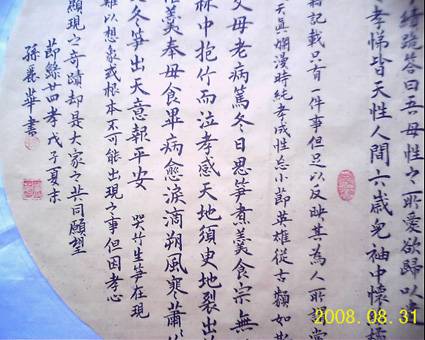 績跪答曰吾母性之所愛欲歸以
孝悌皆天性人間六歲兒袖中懷
記載只有一件事但足以反映其為人所謂當
天真爛漫時純孝成性於小節英雄從古類如
父母老病篤冬日思筍煮羹食宗無
林中抱竹而泣孝感天地須臾地裂出
羹奉母食畢病愈淚滴朔風寒蕭
冬筍出天意報平安 哭竹生筍在現
難以想象或根本不可能出現之事但因孝心
顯現之奇蹟卻是大家之共同願望
節錄廿四孝戊子夏末
孫麗華書
2008.08.31